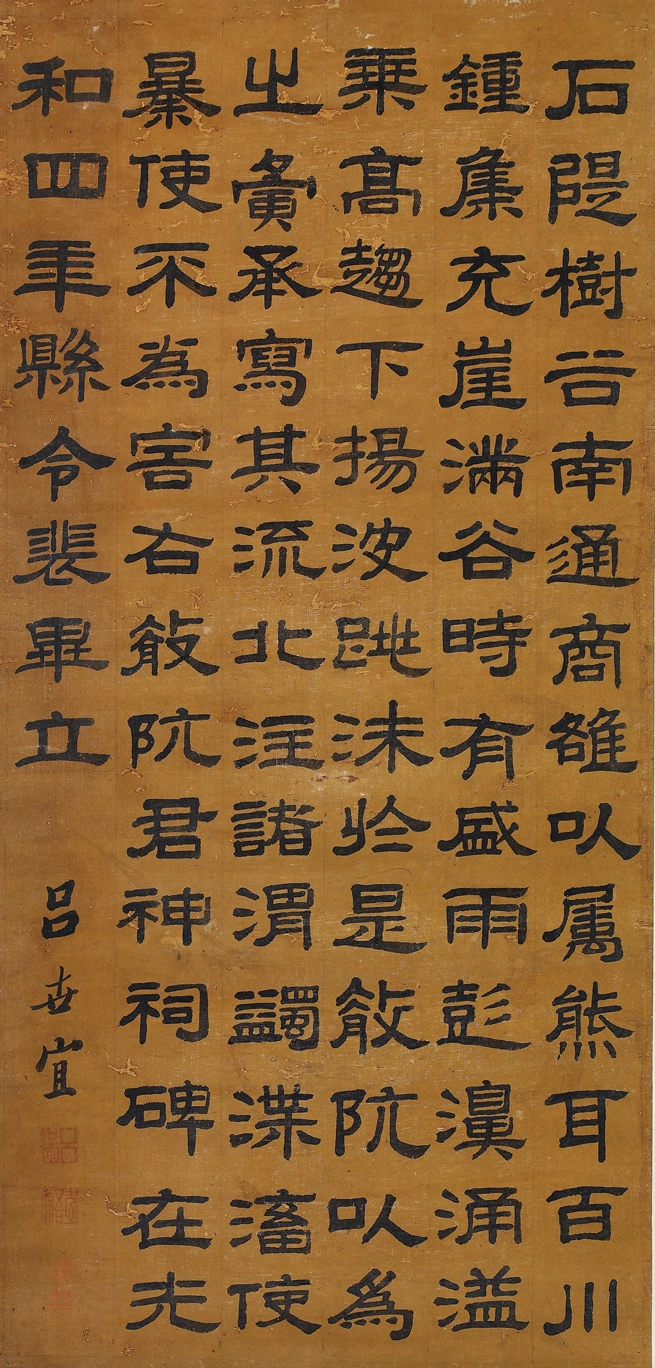 石隄樹谷南通商雒以属熊耳百川
鍾集充崖滿谷時有盛雨彭濞涌溢
乘高趨下揚波跳沫於是殽阬以為
之夤承寫其流北注諸渭蠲渫滀使
暴使不為害右殽阬君神祠碑在光
和四年縣令裴畢立
呂世宜